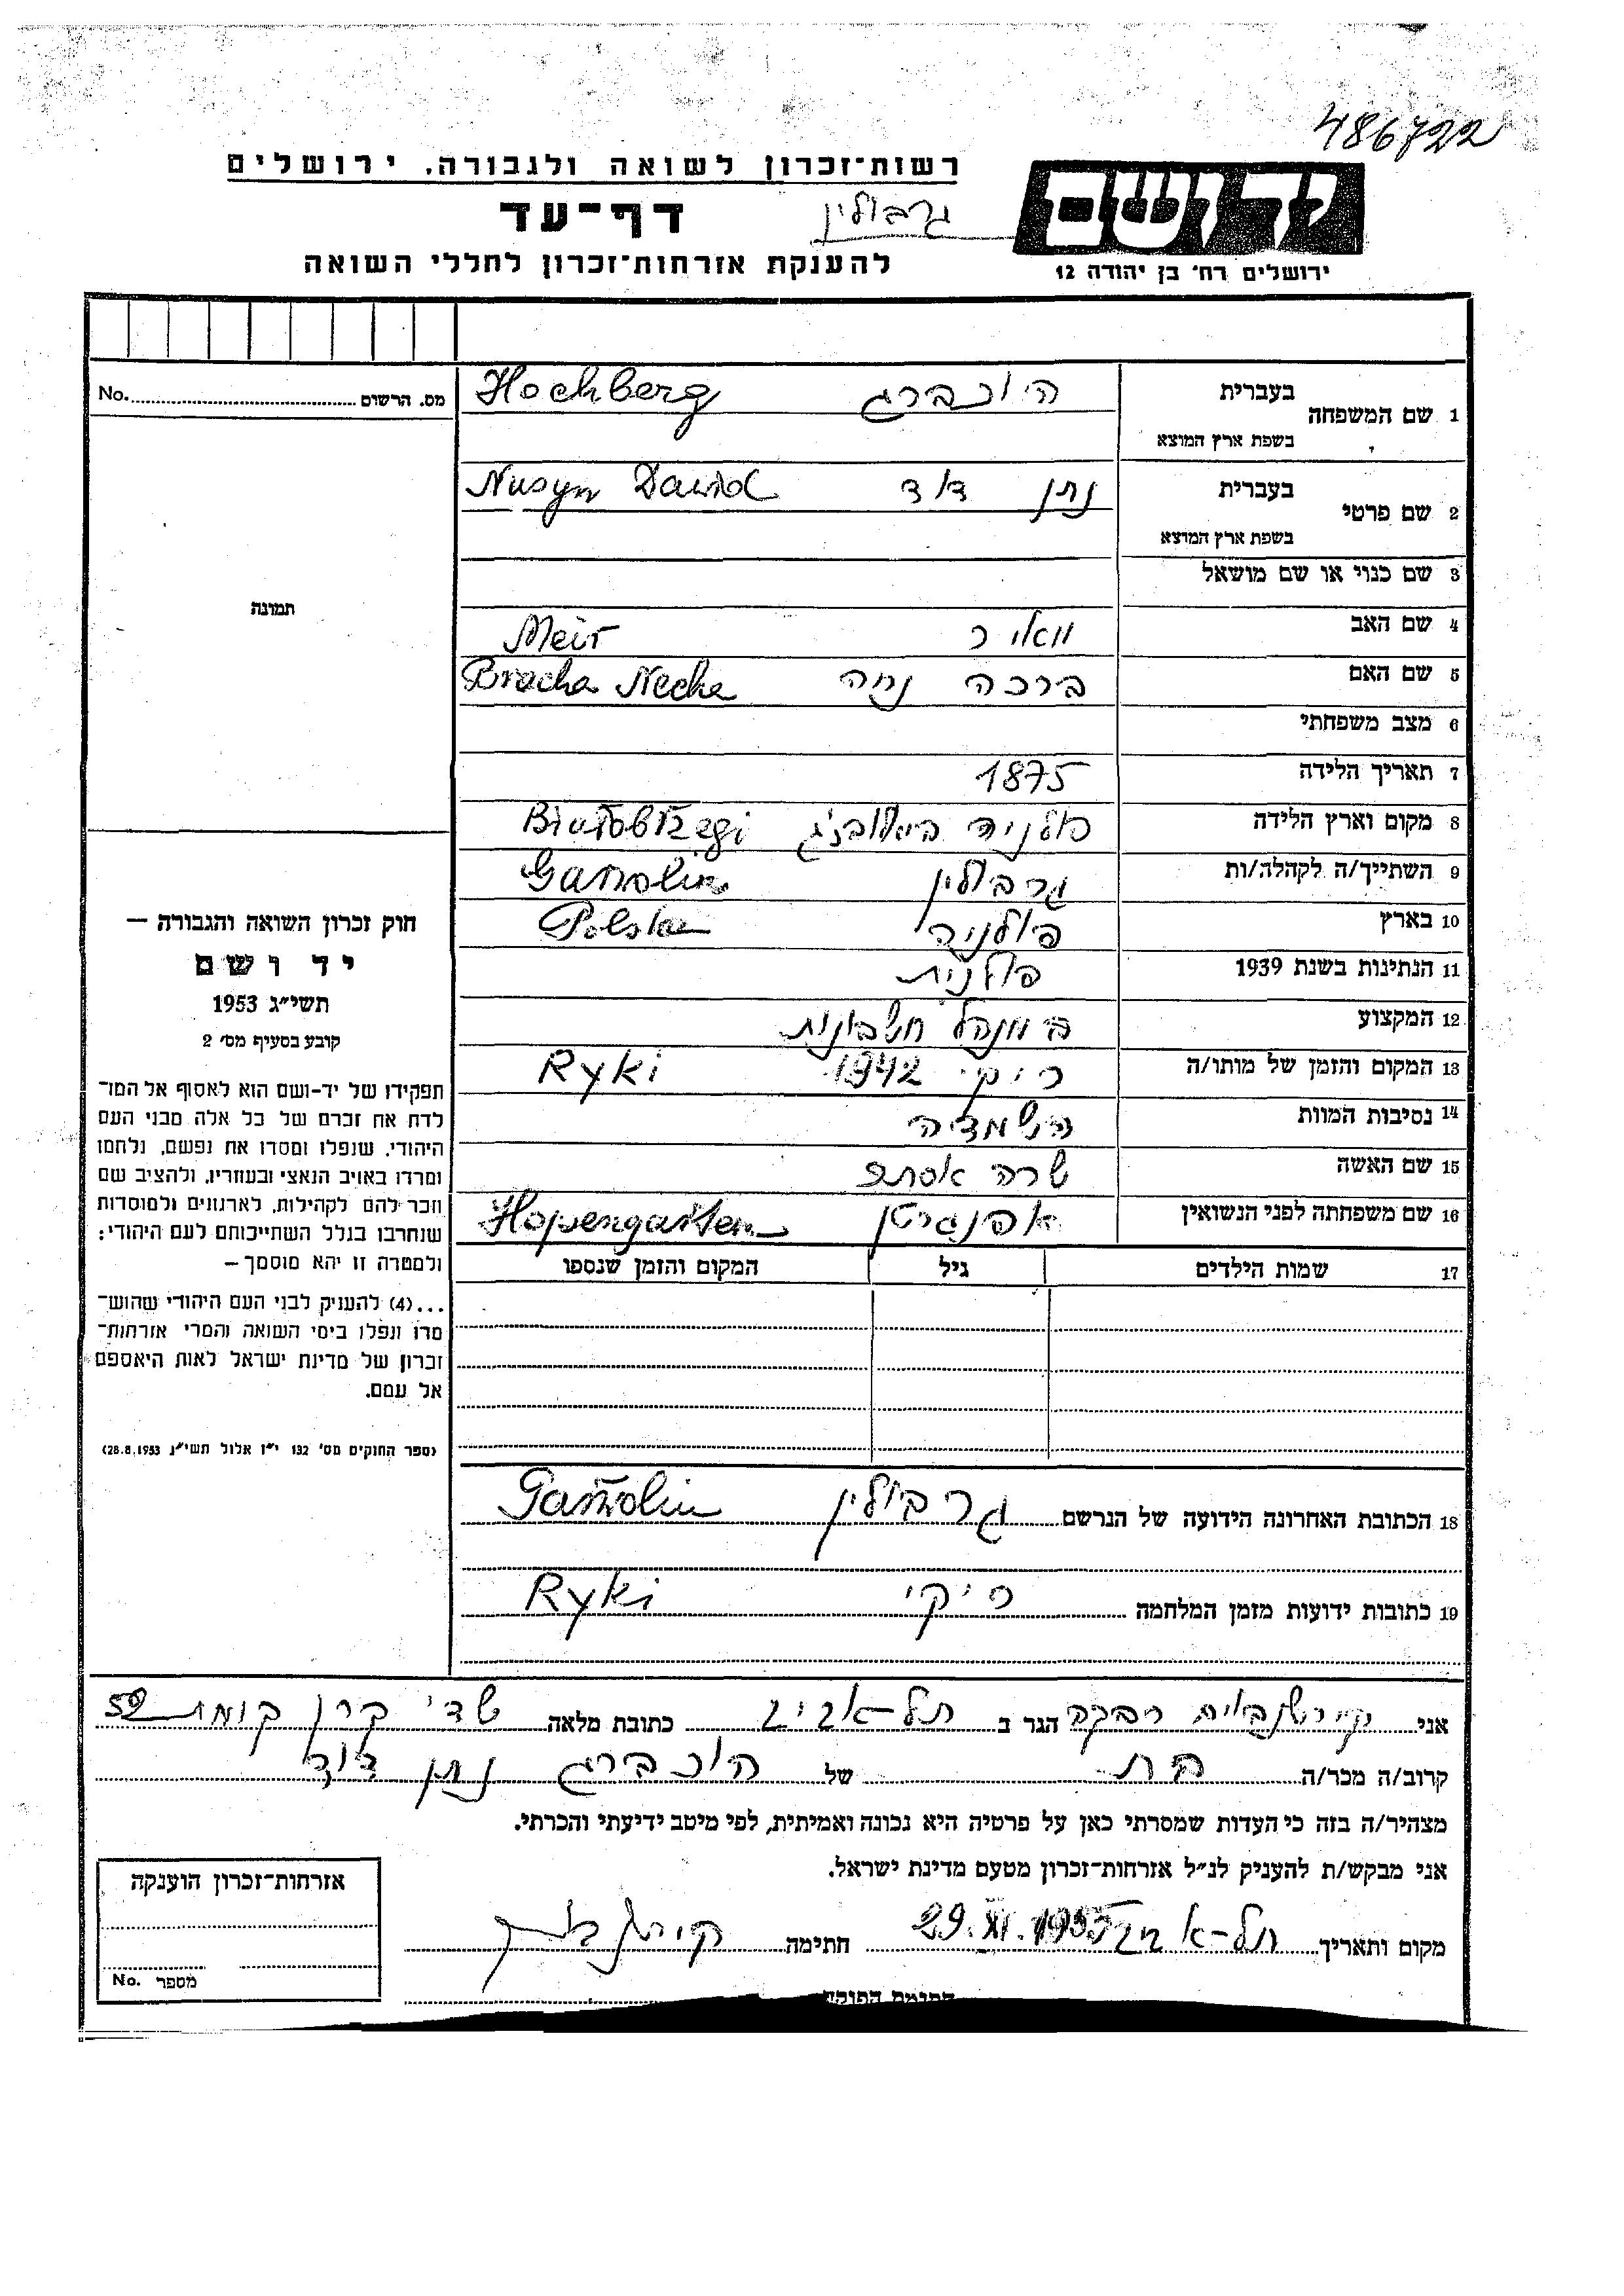 486722
רשות־זכרון לשואה ולגבורה, ירושלים
יד ושם
דף־עד
גרבולין
להענקת אזרחות־זכרון לחללי השואה
ירושלים רח' בן יהודה 12
מס. הרשום No.
1 שם המשפחה בעברית הוכברג Hochberg
בשפת ארץ המוצא
2 שם פרטי בעברית נתן דוד Nusyn Dawid
בשפת ארץ המוצא
3 שם כנוי או שם מושאל
תמונה
4 שם האב מאיר Meir
5 שם האם ברכה נחה Bracha Necha
6 מצב משפחתי
7 תאריך הלידה 1875
8 מקום וארץ הלידה פולניה Białobrzegi
9 השתייך/ה לקהלה/ות גרבולין
10 בארץ פולניה Polska
11 הנתינות בשנת 1939 פולנית
12 המקצוע מנהל חשבונות
13 המקום והזמן של מותו/ה ריקי 1942 Ryki
14 נסיבות המוות השמדה
15 שם האשה שרה אסתר
16 שם משפחתה לפני הנשואין אפנגרטן Hopengarten
17 שמות הילדים גיל המקום והזמן שנספו
18 הכתובת האחרונה הידועה של הנרשם גרבולין
19 כתובות ידועות מזמן המלחמה ריקי Ryki
חוק זכרון השואה והגבורה —
יד ושם
תשי"ג 1953
קובע בסעיף מס' 2
תפקידו של יד-ושם הוא לאסוף אל המו־
לדת את זכרם של כל אלה מבני העם
היהודי, שנפלו ומסרו את נפשם, נלחמו
ומרדו באויב הנאצי ובעוזריו, ולהציב שם
וזכר להם לקהילות, לארגונים ולמוסדות
שנחרבו בגלל השתייכותם לעם היהודי;
ולמטרה זו יהא מוסמך —
...(4) להעניק לבני העם היהודי שהוש־
מדו ונפלו בימי השואה והמרי אזרחות־
זכרון של מדינת ישראל לאות היאספם
אל עמם.
(ספר החוקים מס' 132 י"ז אלול תשי"ג 28.8.1953)
אני רבקה הגר ב תל-אביב כתובת מלאה שדי קרן קימת 52
קרוב/ה מכר/ה בת של הוכברג נתן דוד
מצהיר/ה בזה כי העדות שמסרתי כאן על פרטיה היא נכונה ואמיתית, לפי מיטב ידיעתי והכרתי.
אני מבקש/ת להעניק לנ"ל אזרחות־זכרון מטעם מדינת ישראל.
מקום ותאריך תל-אביב 29.XI.1955 חתימה
אזרחות־זכרון הוענקה
מספר No.